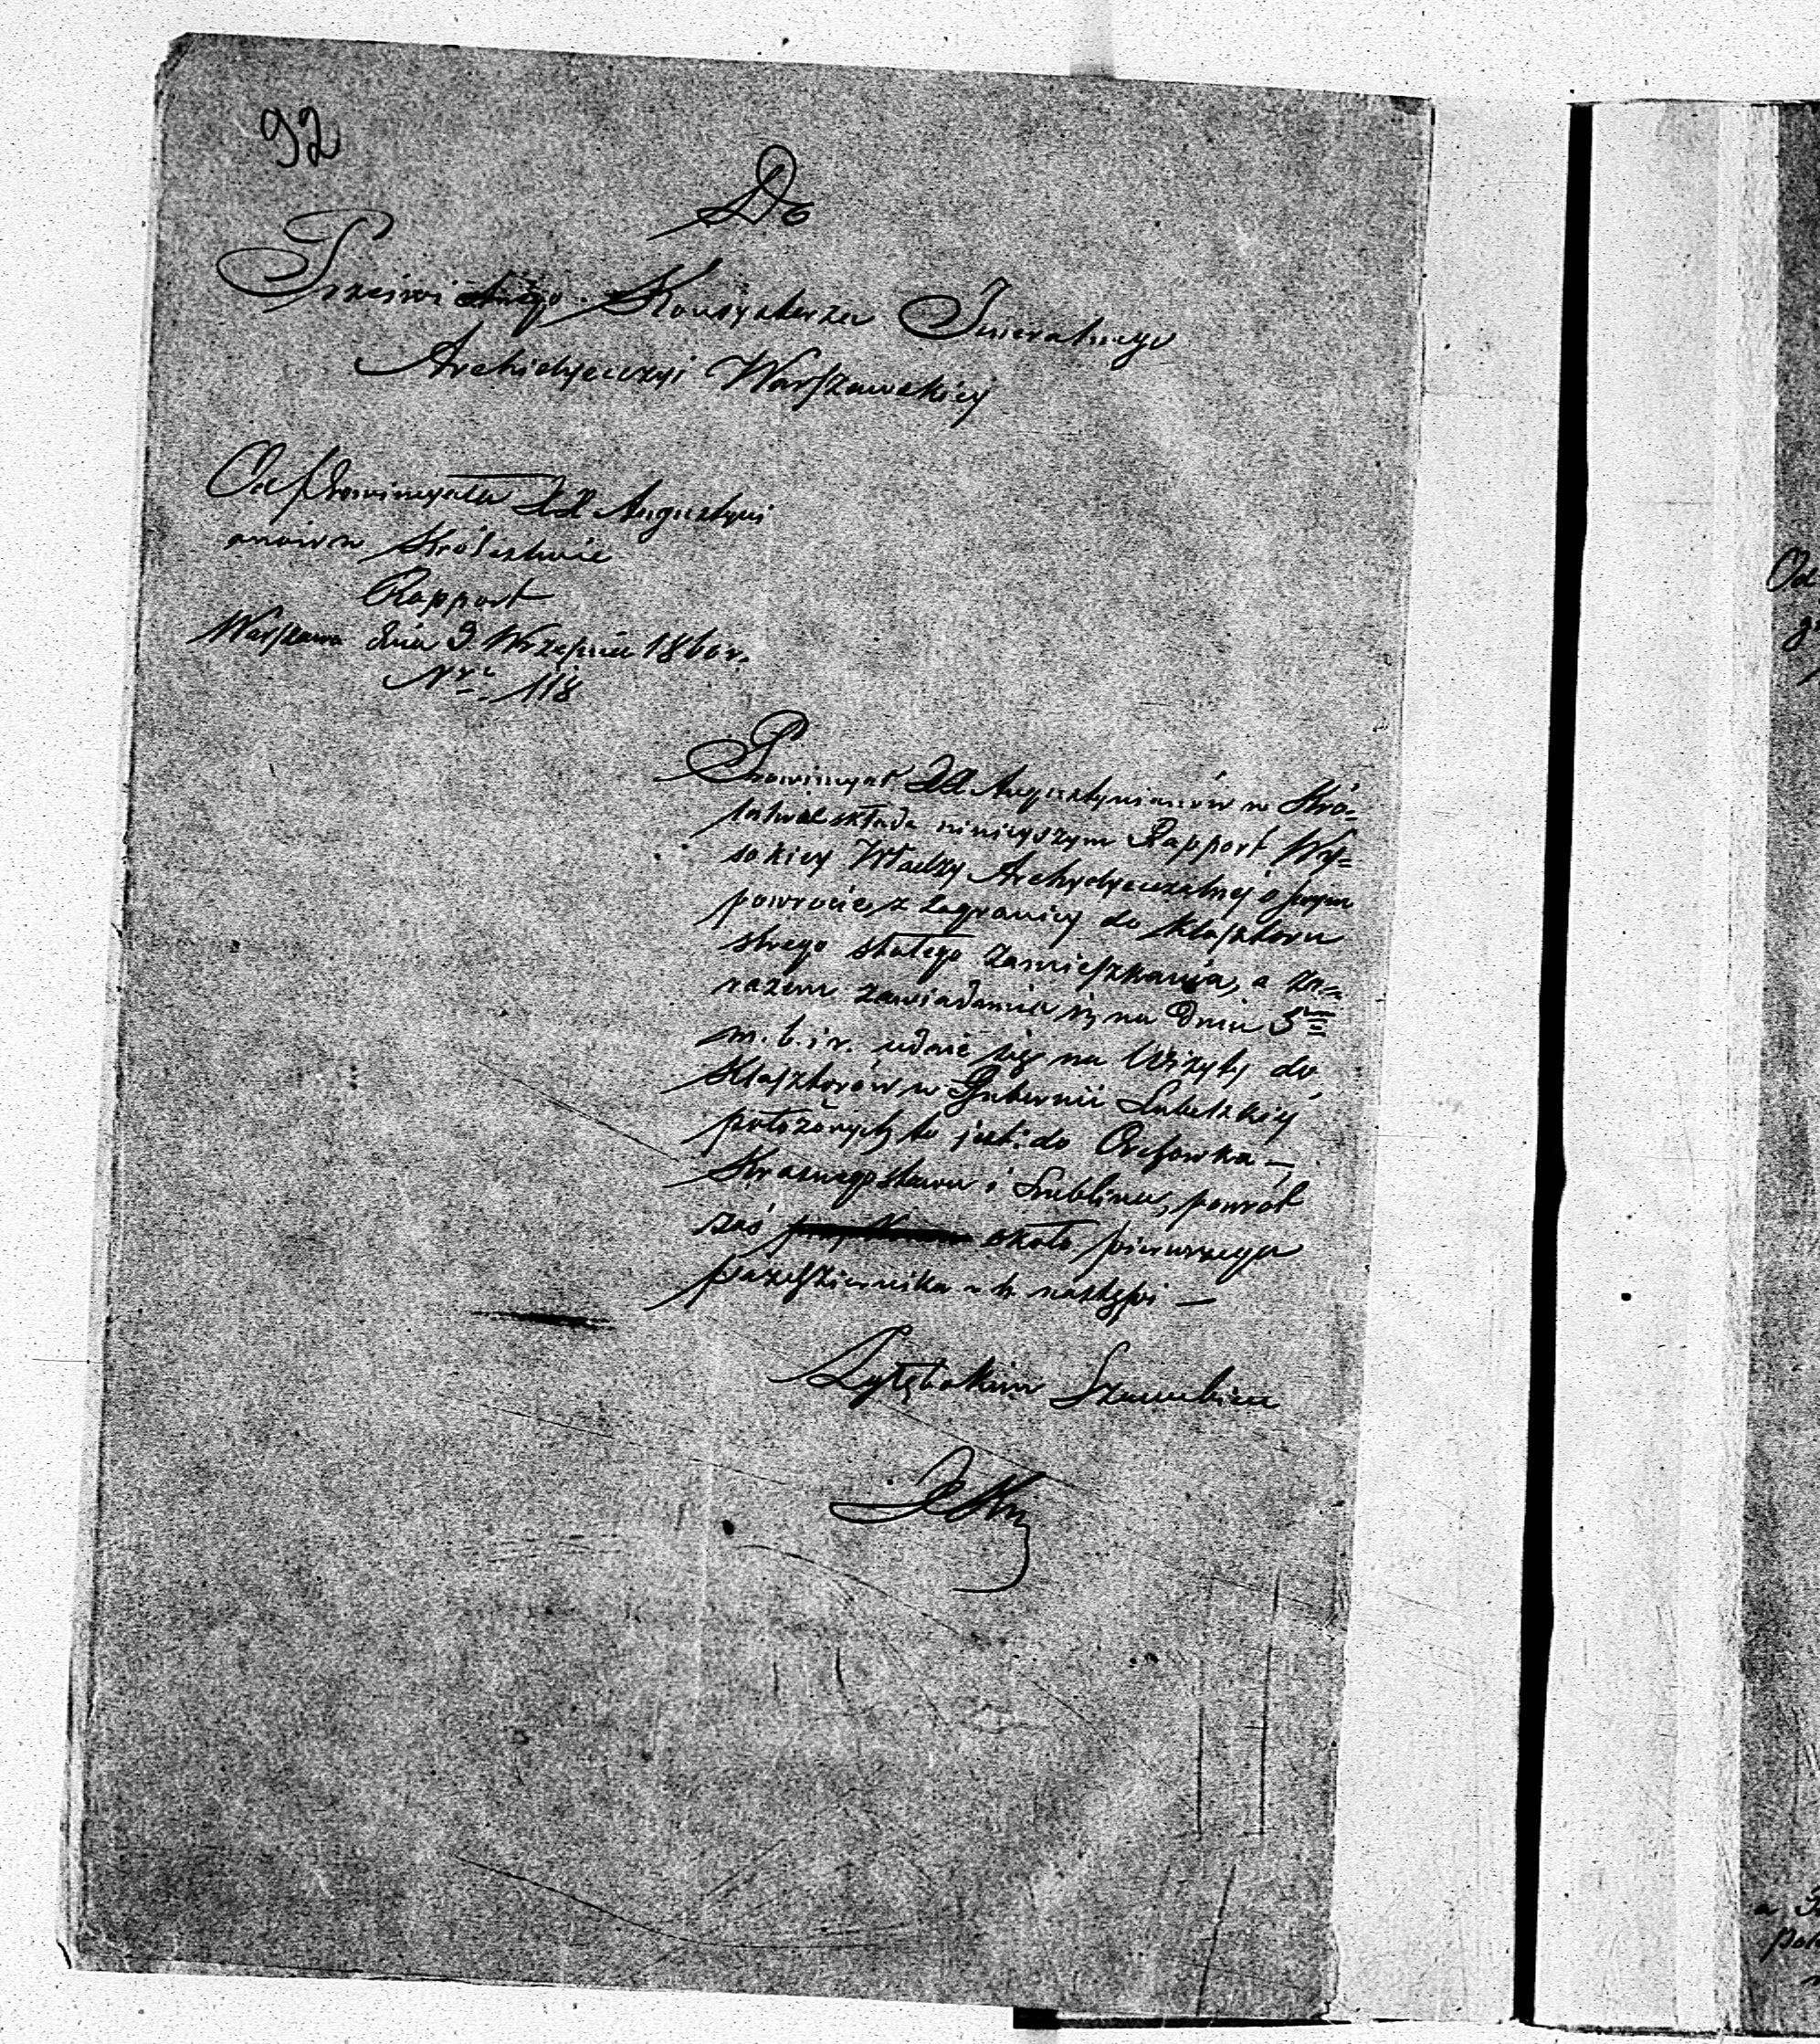 92
Do
Prześwietnego Konsystorza Jeneralnego
Archidyecezyi Warszawskiey
Od Prowincyała XX Augustyni
anów w Królestwie
Rapport
Warszawa dnia 9 Września 1860 r.
Nro 118
Prowincyał XX Augustynianów w Kró-
lestwie składa niniejszym Rapport Wy-
sokiey Władzy Archydyecezalnej o swym
powrocie z zagranicy do klasztoru
swego stałego zamieszkania, a za-
razem zawiadamia iż na dniu
m. b. i r. udaie się na Wizyty do
Klasztorów w Gubernii Lubelskiey
położonych to jest: do Orchowka —,
Krasnegostawu i Lublina, powrót
zaś około pierwszego
pazdziernika r. b. nastąpi —
Od